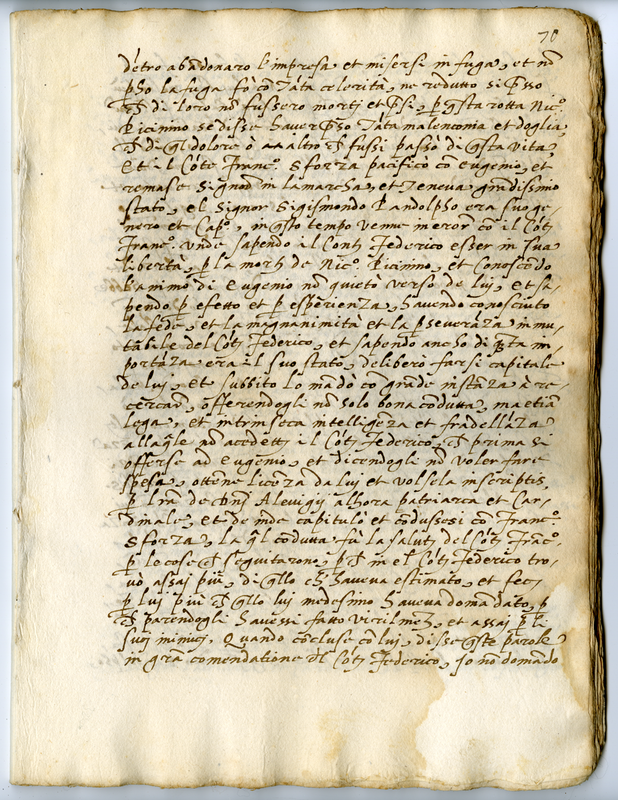 70
détro abandonaro l'impresa et misersi in fuga, et nō
pho la fuga fò cō tāta celerità, ne redutto si
di loro nō fussero morti et psi, p qsta rotta Nic.º
Picinino se disse haver pso tāta malenconia et doglia,
di ql dolore ò altro fussi passò di qsta vita,
Et il Cōte Franc.º Sforza pacificò cō Eugenio, et
remase Signor in lamarcha, et Teneva grādissimo
stato, el Signor Sigismondo Pandolpho era suo ge-
nero et Cap.º, in qsto tempo venne in eror cō il Cōt
Franc.º Unde sapendo il Conti Federico esser in sua
libertà, p la morti de Nic.º Picinino, et Conoscēdo
l'animo di Eugenio nō quieto verso de lui, et sa-
pendo p efetto et p esperienza, havendo conosciuto
la fede, et la magnanimità et la pseverāza inmu-
tabile del Cōti Federico, et sapendo ancho di qta im-
portāza era il suo stato, deliberò farsi capitale
de lui, et subbito lo mādò cō grāde instāza à re-
cercar, offerendogli nō solo bona cōdutta, ma etiā
lega, et intrinseca intelligēza et fradellāza
alla qle nō acedetti il Cōti Federico, prima si
offerse ad Eugenio, et dicendogli nō voler fare
spesa, ottēne licēza da lui et volsela inscriptis,
p lrā de Dnj Alevigij alhora patriarca et Car-
dinale, et de inde capitulò et cōdussesi cō Franc.º
Sforza, la ql cōdutta fù la saluti del Cōti Frāc.º
p le cose seguitarono, in el Cōti Federico tro-
vò assai più, di qllo ch haveva estimato, et feci
p lui più qllo lui medesimo haveva domādato, p
parendogli havessi fatto virilmēti, et assai p li
suij inimici. Quando cōcluse cō lui, disse qste parole
in grā comendatione del Cōti Federico, Io nō domādo